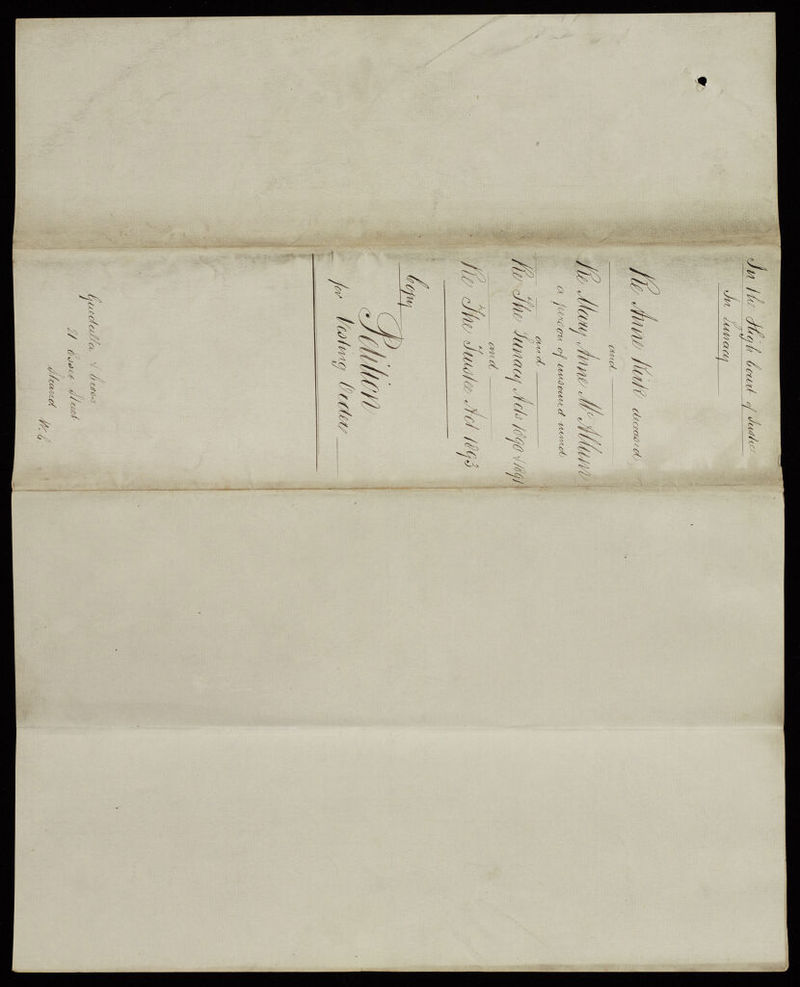 In the High Court of Justice
In Lunacy
Re Anne Kirk deceased
and
Re Mary Anne McAllum
a person of unsound mind
and
Re The Lunacy Acts 1890 & 1891
and
Re The Trustee Act 1893
Copy
Petition
for Vesting Order
& Cross
21 Essex Street
Strand W.C.